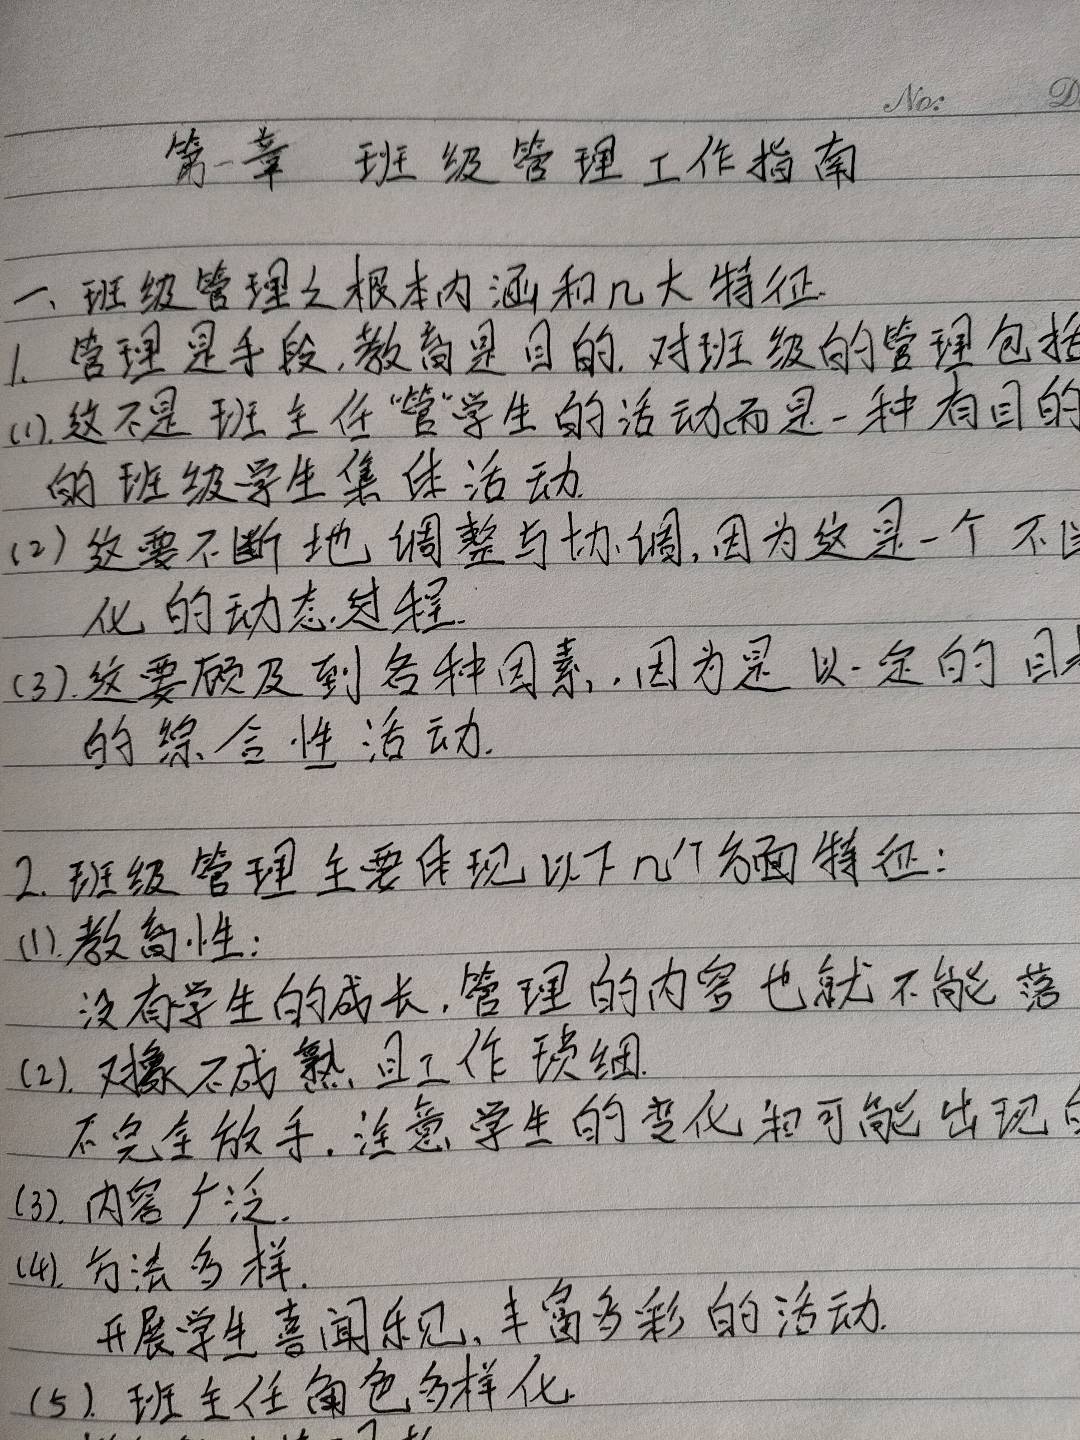 No:
第一章 班级管理工作指南
一、班级管理之根本内涵和几大特征.
1. 管理是手段,教育是目的. 对班级的管理包括
(1).这不是班主任“管”学生的活动而是一种有目的
的班级学生集体活动.
(2) 这要不断地调整与协调,因为这是一个不
化的动态过程.
(3).这要顾及到各种因素,因为是以一定的目
的综合性活动.
2. 班级管理主要体现以下几个方面特征:
(1).教育性:
没有学生的成长,管理的内容也就不能落
(2). 对象不成熟,且工作琐细.
不完全放手.注意学生的变化和可能出现
(3). 内容广泛.
(4). 方法多样.
开展学生喜闻乐见、丰富多彩的活动.
(5). 班主任角色多样化.